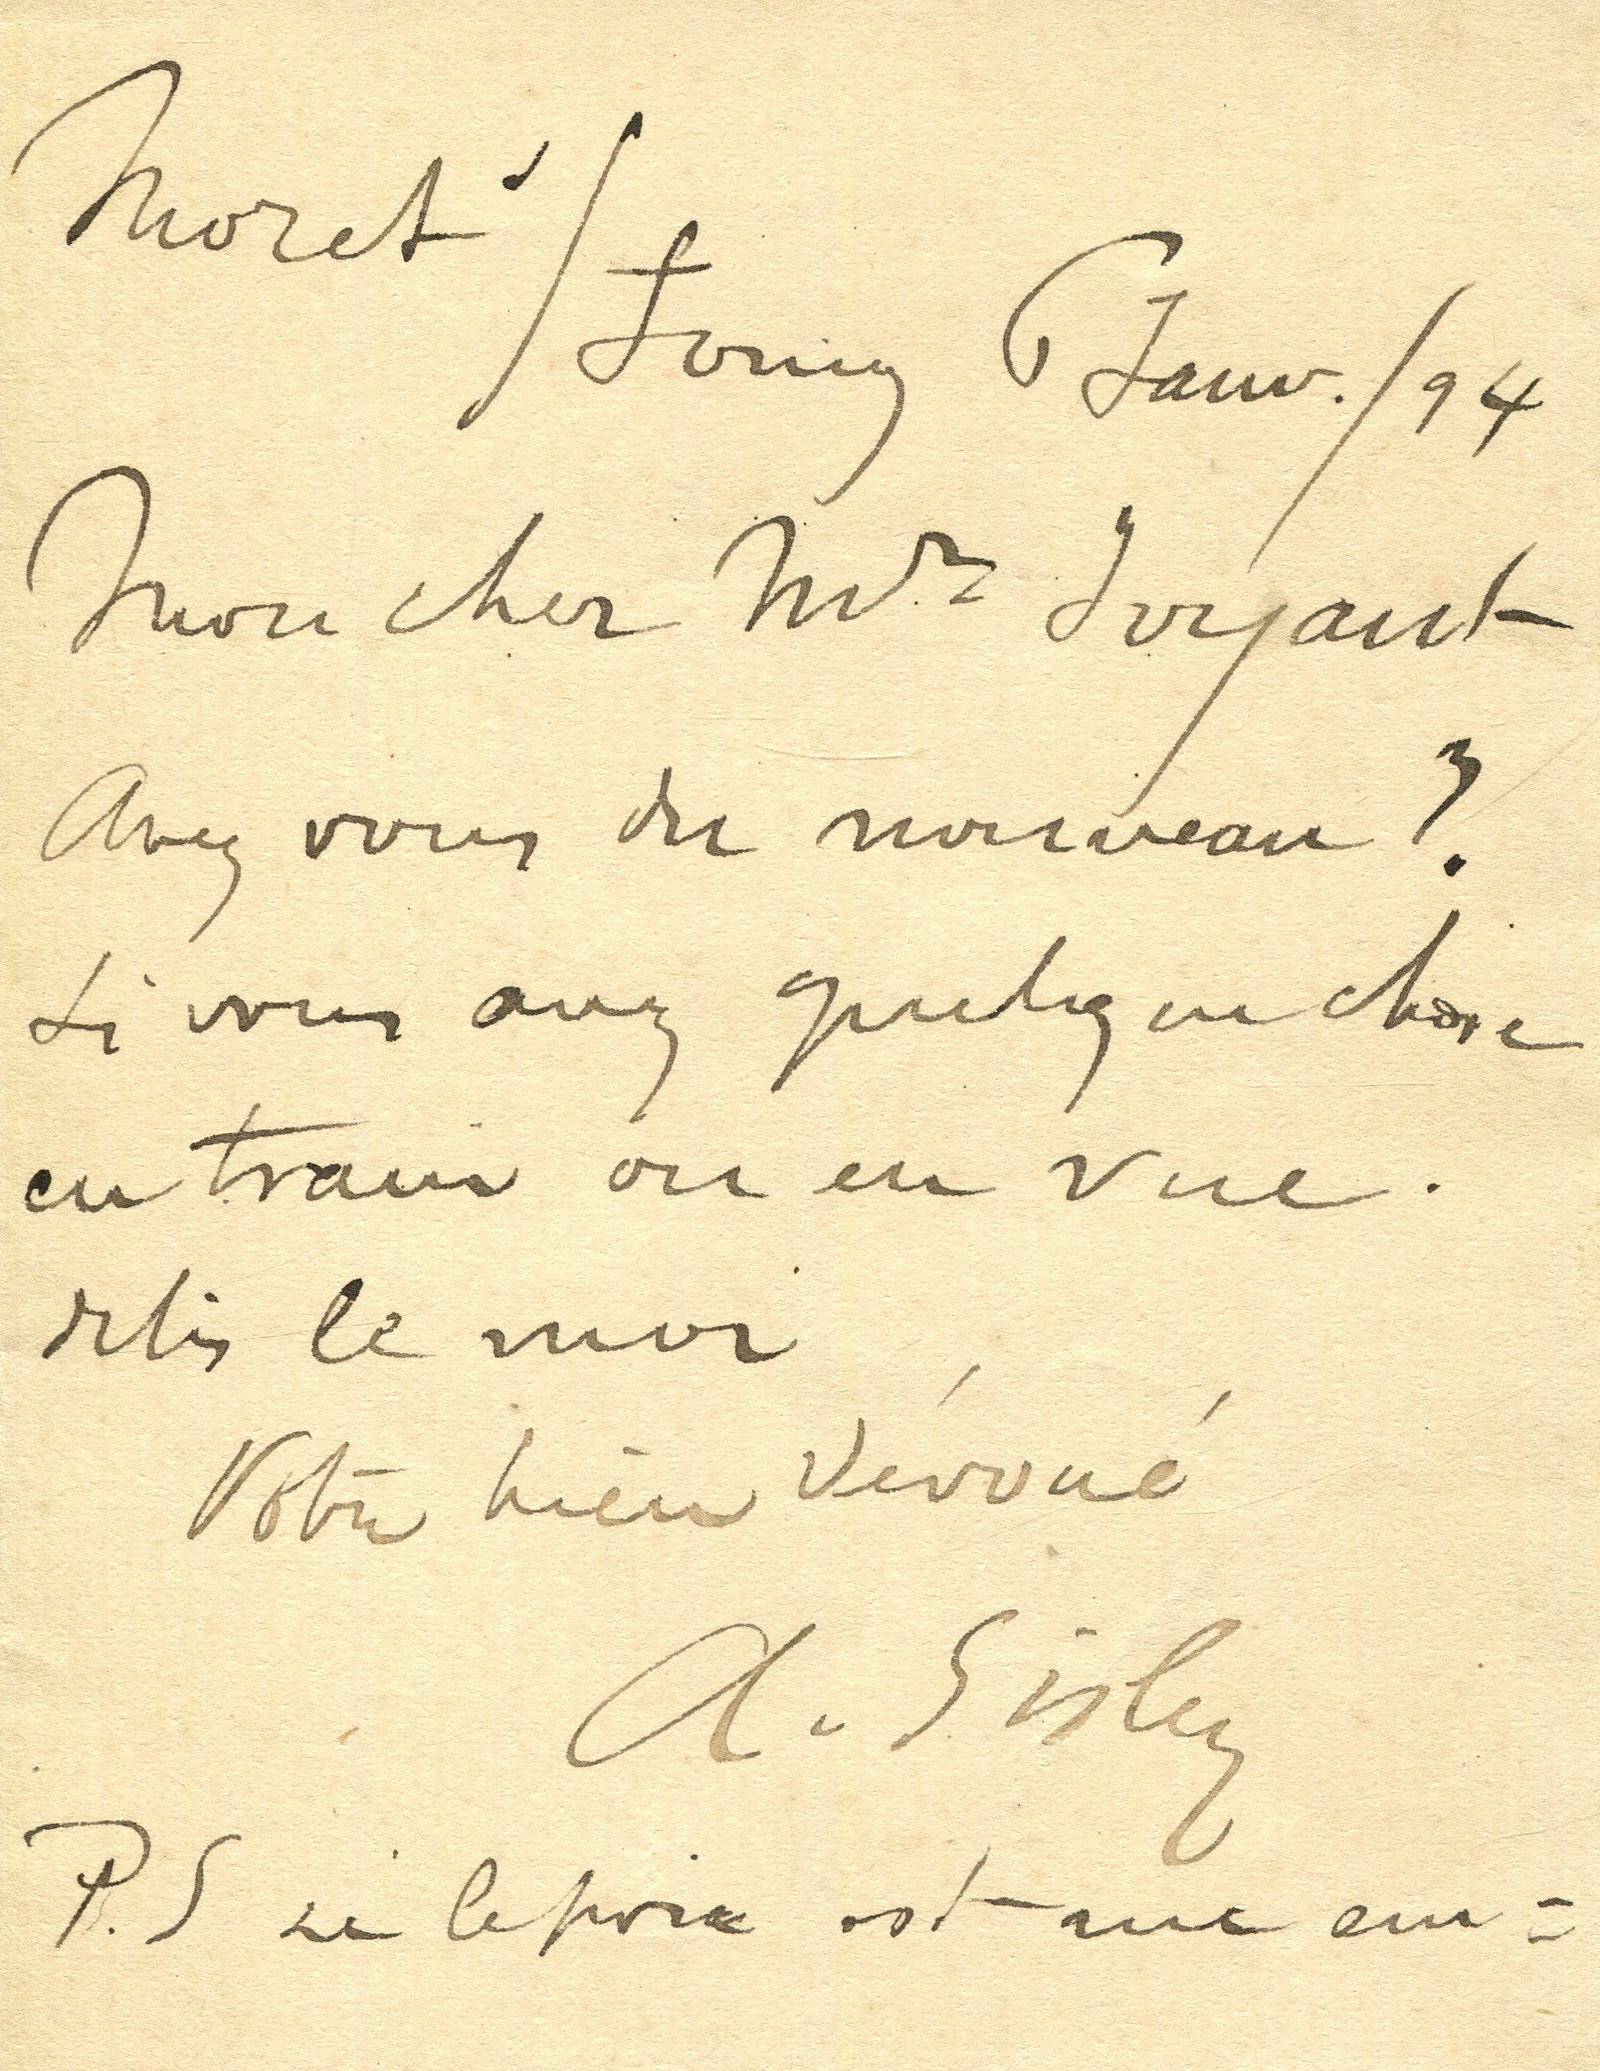 Moret s/Loing 6 Janv./94
Mon cher Mr Joyant
Avez vous du nouveau?
Si vous avez quelque chose
en train ou en vue.
dites le moi
Votre bien dévoué
A. Sisley
P.S si le prix est une em=